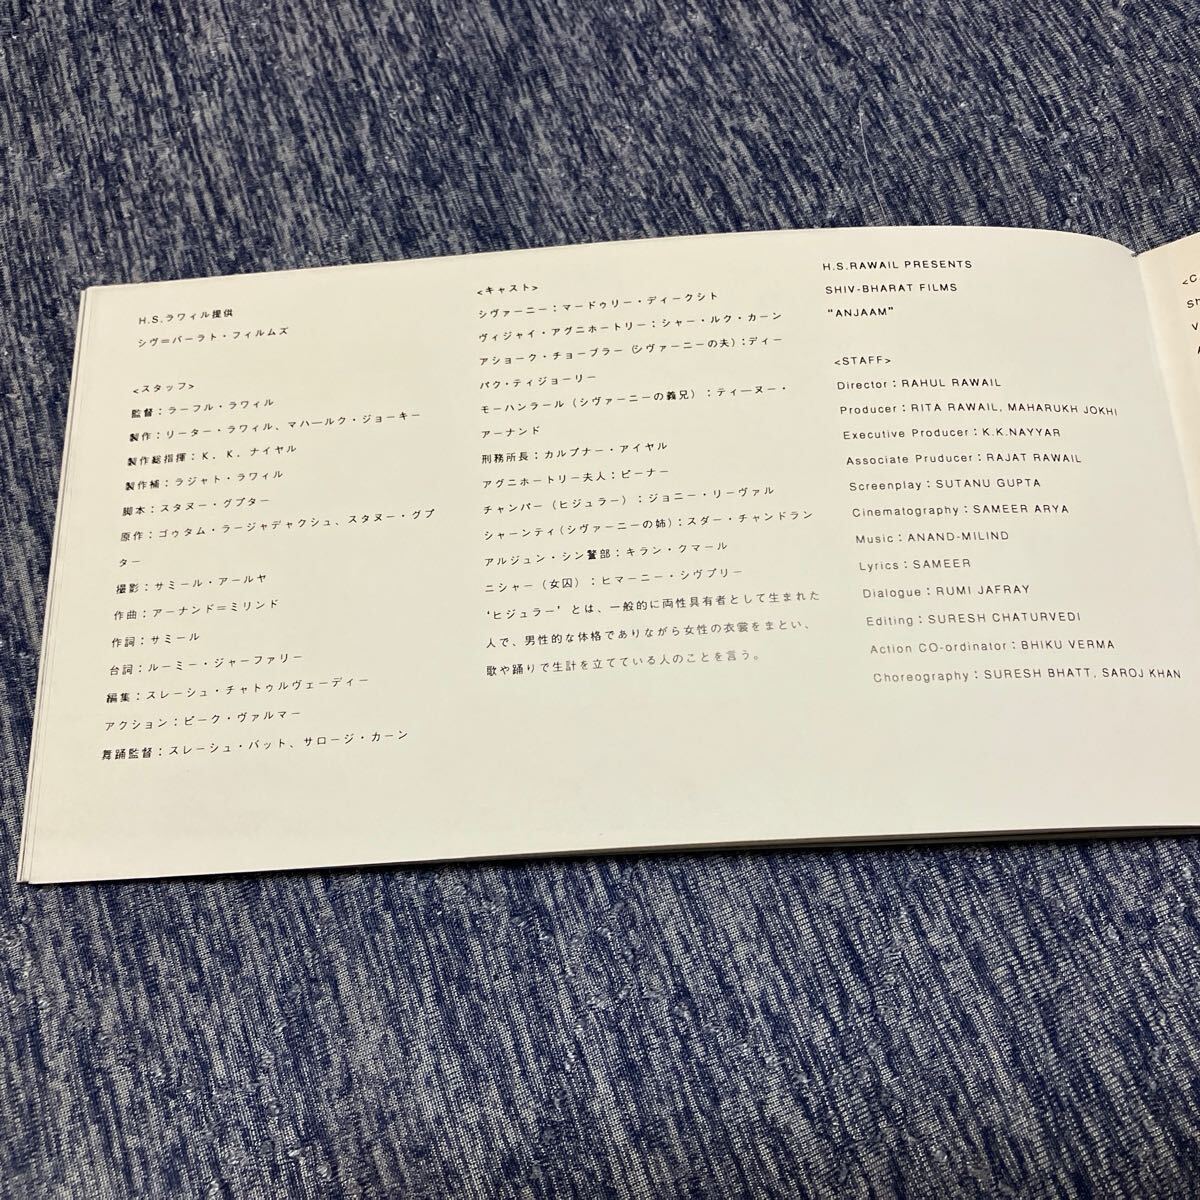 H.S.ラウィル提供
シヴ=バーラト・フィルムズ
<スタッフ>
監督：ラーフル・ラウィル
製作：リーター・ラウィル、マハールク・ジョーキー
製作総指揮：K．K．ナイヤル
製作補：ラジャト・ラウィル
脚本：スタヌー・グプター
原作：ゴゥタム・ラージャデャクシュ、スタヌー・グプ
ター
撮影：サミール・アールヤ
作曲：アーナンド=ミリンド
作詞：サミール
台詞：ルーミー・ジャーファリー
編集：スレーシュ・チャトゥルヴェーディー
アクション：ビーク・ヴァルマー
舞踊監督：スレーシュ・バット、サロージ・カーン
<キャスト>
シヴァーニー：マードゥリー・ディークシト
ヴィジャイ・アグニホートリー：シャー・ルク・カーン
アショーク・チョープラー（シヴァーニーの夫）：ディー
パク・ティジョーリー
モーハンラール（シヴァーニーの義兄）：ティーヌー・
アーナンド
刑務所長：カルプナー・アイヤル
アグニホートリー夫人：ビーナー
チャンパー（ヒジュラー）：ジョニー・リーヴァル
シャーンティ（シヴァーニーの姉）：スダー・チャンドラン
アルジュン・シン警部：キラン・クマール
ニシャー（女囚）：ヒマーニー・シヴプリー
'ヒジュラー' とは、一般的に両性具有者として生まれた
人で、男性的な体格でありながら女性の衣裳をまとい、
歌や踊りで生計を立てている人のことを言う。
H.S.RAWAIL PRESENTS
SHIV-BHARAT FILMS
"ANJAAM"
<STAFF>
Director：RAHUL RAWAIL
Producer：RITA RAWAIL, MAHARUKH JOKHI
Executive Producer：K.K.NAYYAR
Associate Producer：RAJAT RAWAIL
Screenplay：SUTANU GUPTA
Cinematography：SAMEER ARYA
Music：ANAND-MILIND
Lyrics：SAMEER
Dialogue：RUMI JAFRAY
Editing：SURESH CHATURVEDI
Action CO-ordinator：BHIKU VERMA
Choreography：SURESH BHATT, SAROJ KHAN